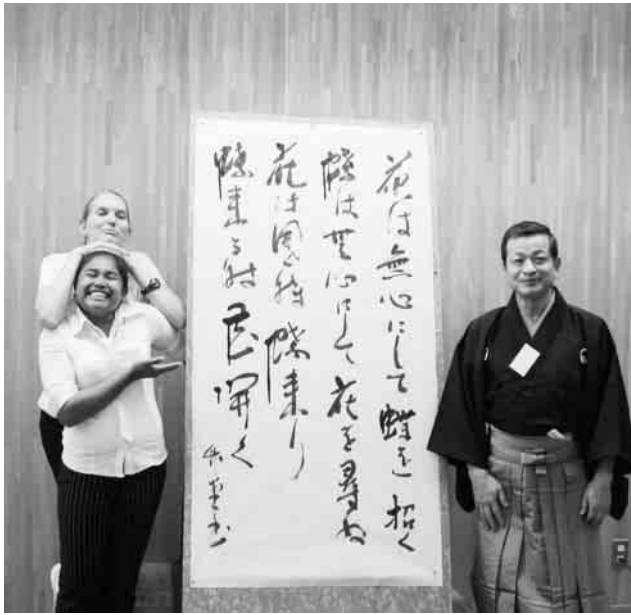 花は無心にして蝶を招く
蝶は無心にして花を尋ぬ
花は開く時蝶来り
蝶来る時花開く